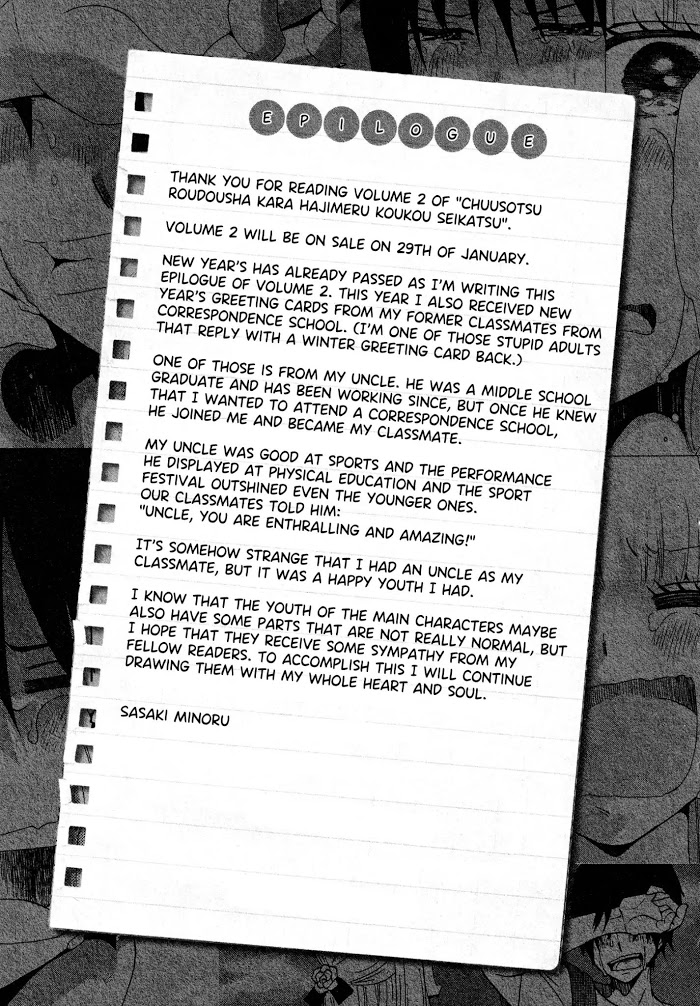 EPILOGUE
THANK YOU FOR READING VOLUME 2 OF "CHUUSOTSU
ROUDOUSHA KARA HAJIMERU KOUKOU SEIKATSU".
VOLUME 2 WILL BE ON SALE ON 29TH OF JANUARY.
NEW YEAR'S HAS ALREADY PASSED AS I'M WRITING THIS
EPILOGUE OF VOLUME 2. THIS YEAR I ALSO RECEIVED NEW
YEAR'S GREETING CARDS FROM MY FORMER CLASSMATES FROM
CORRESPONDENCE SCHOOL. (I'M ONE OF THOSE STUPID ADULTS
THAT REPLY WITH A WINTER GREETING CARD BACK.)
ONE OF THOSE IS FROM MY UNCLE. HE WAS A MIDDLE SCHOOL
GRADUATE AND HAS BEEN WORKING SINCE, BUT ONCE HE KNEW
THAT I WANTED TO ATTEND A CORRESPONDENCE SCHOOL,
HE JOINED ME AND BECAME MY CLASSMATE.
MY UNCLE WAS GOOD AT SPORTS AND THE PERFORMANCE
HE DISPLAYED AT PHYSICAL EDUCATION AND THE SPORT
FESTIVAL OUTSHINED EVEN THE YOUNGER ONES.
OUR CLASSMATES TOLD HIM:
"UNCLE, YOU ARE ENTHRALLING AND AMAZING!"
IT'S SOMEHOW STRANGE THAT I HAD AN UNCLE AS MY
CLASSMATE, BUT IT WAS A HAPPY YOUTH I HAD.
I KNOW THAT THE YOUTH OF THE MAIN CHARACTERS MAYBE
ALSO HAVE SOME PARTS THAT ARE NOT REALLY NORMAL, BUT
I HOPE THAT THEY RECEIVE SOME SYMPATHY FROM MY
FELLOW READERS. TO ACCOMPLISH THIS I WILL CONTINUE
DRAWING THEM WITH MY WHOLE HEART AND SOUL.
SASAKI MINORU